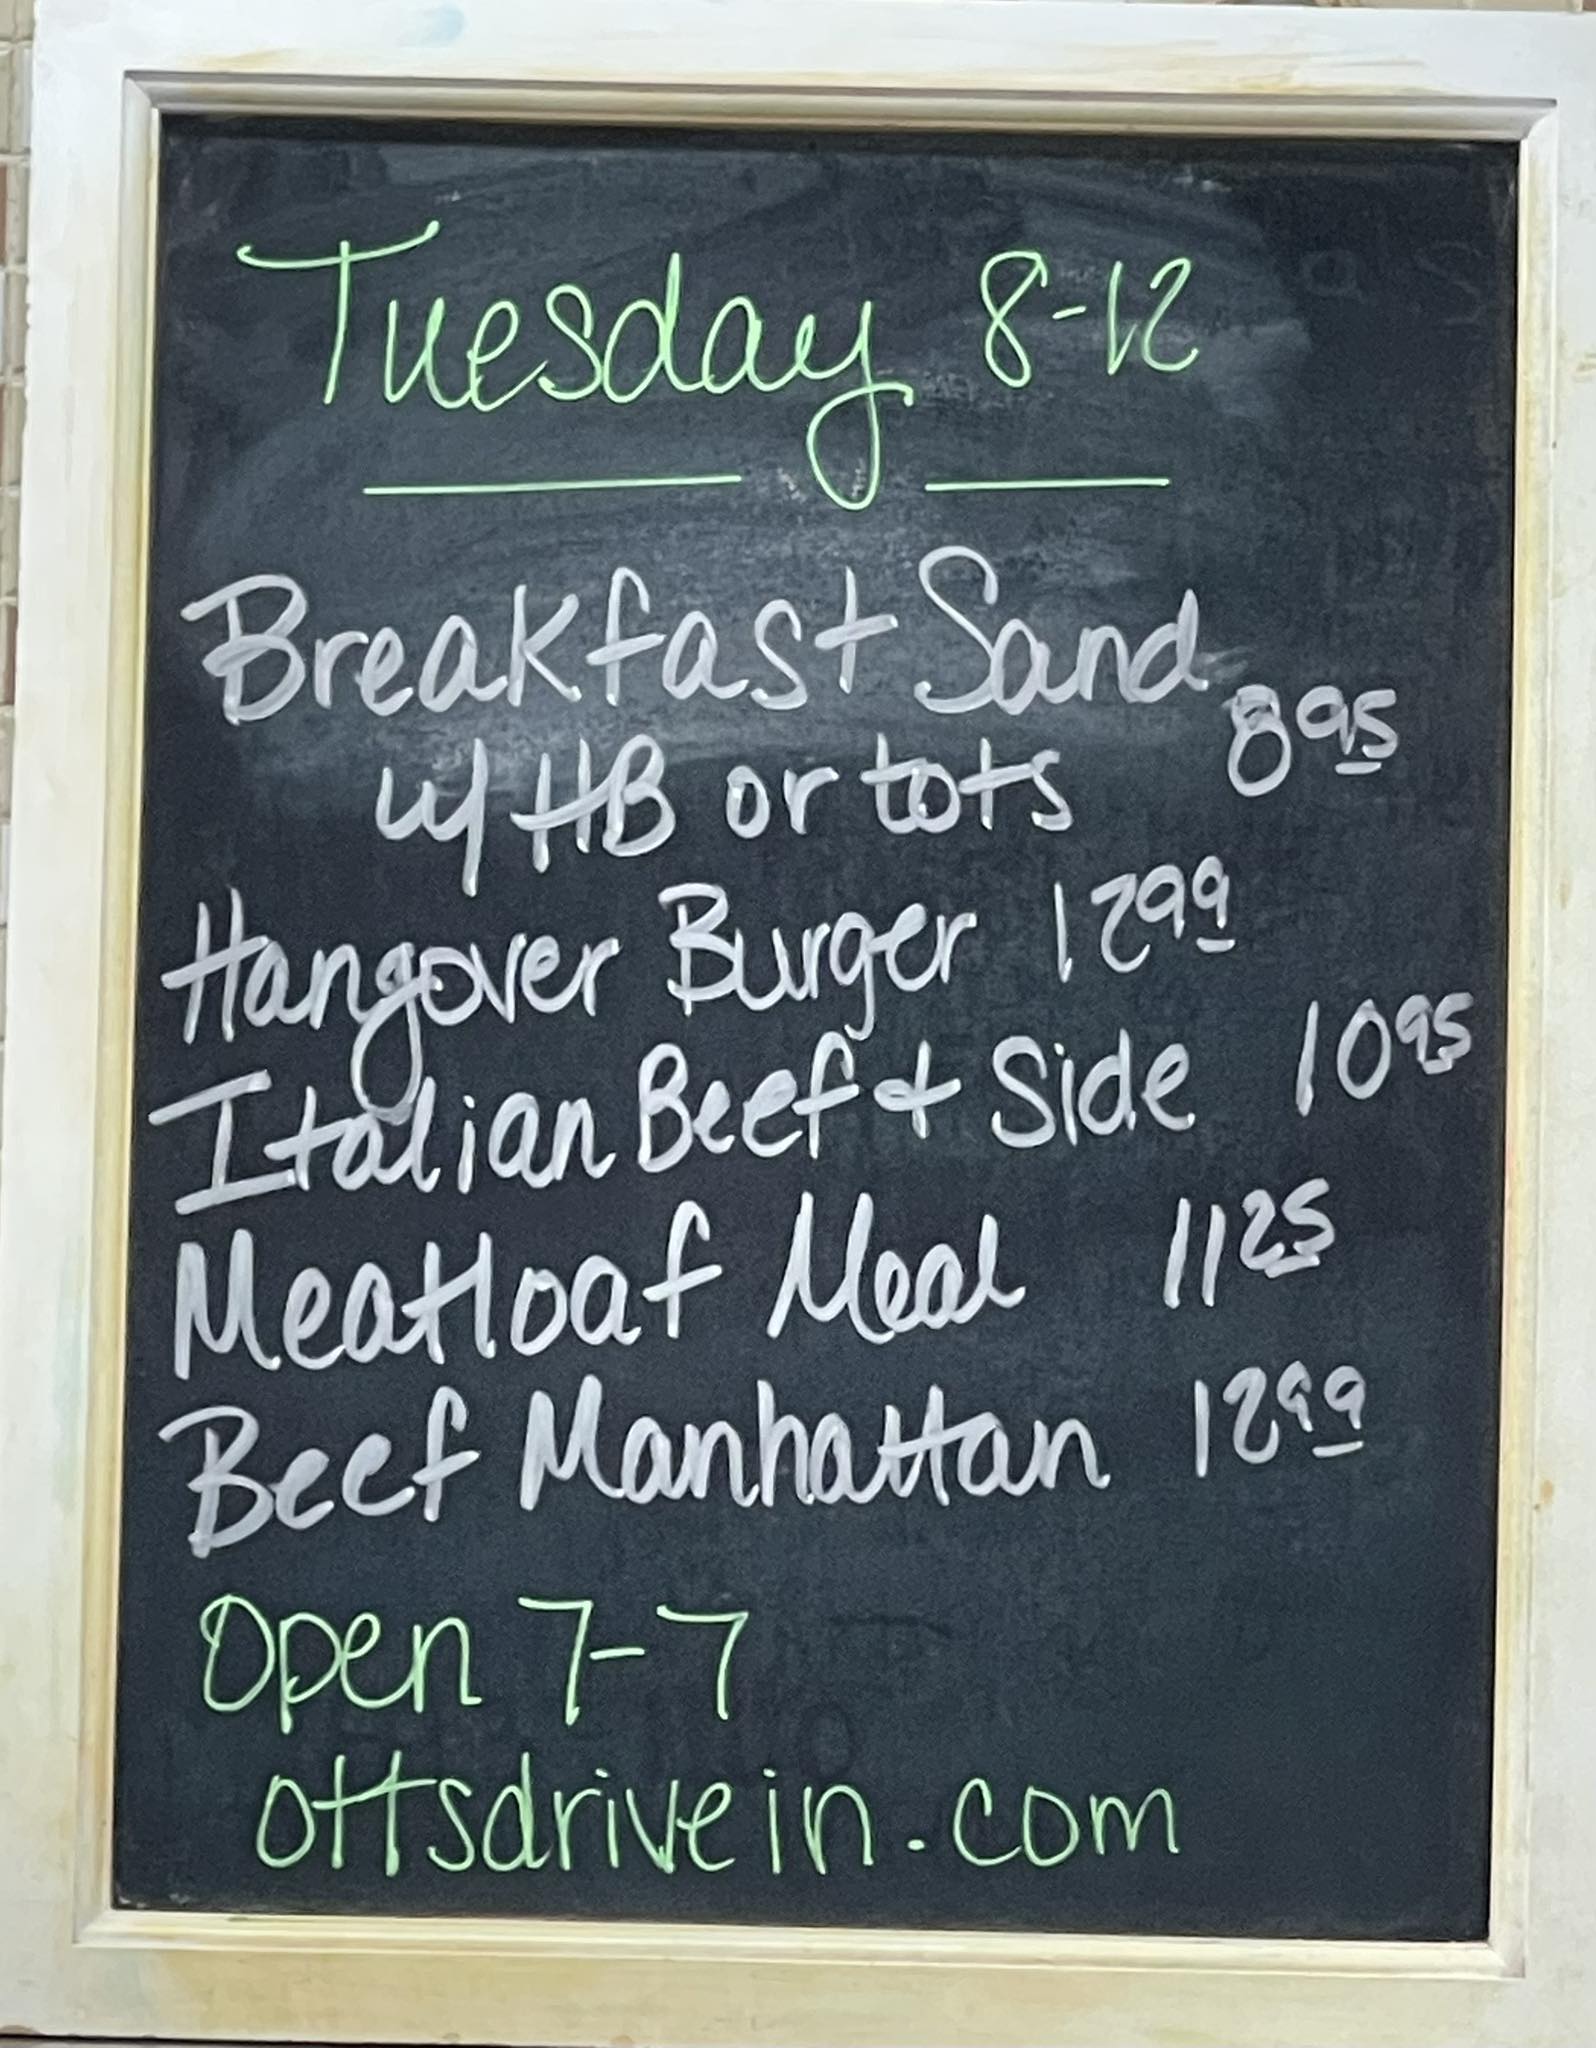 Tuesday 8-12
Breakfast Sand
w/ HB or tots 8 95
Hangover Burger 12 99
Italian Beef & Side 10 95
Meatloaf Meal 11 25
Beef Manhattan 12 99
Open 7-7
ottsdrivein.com